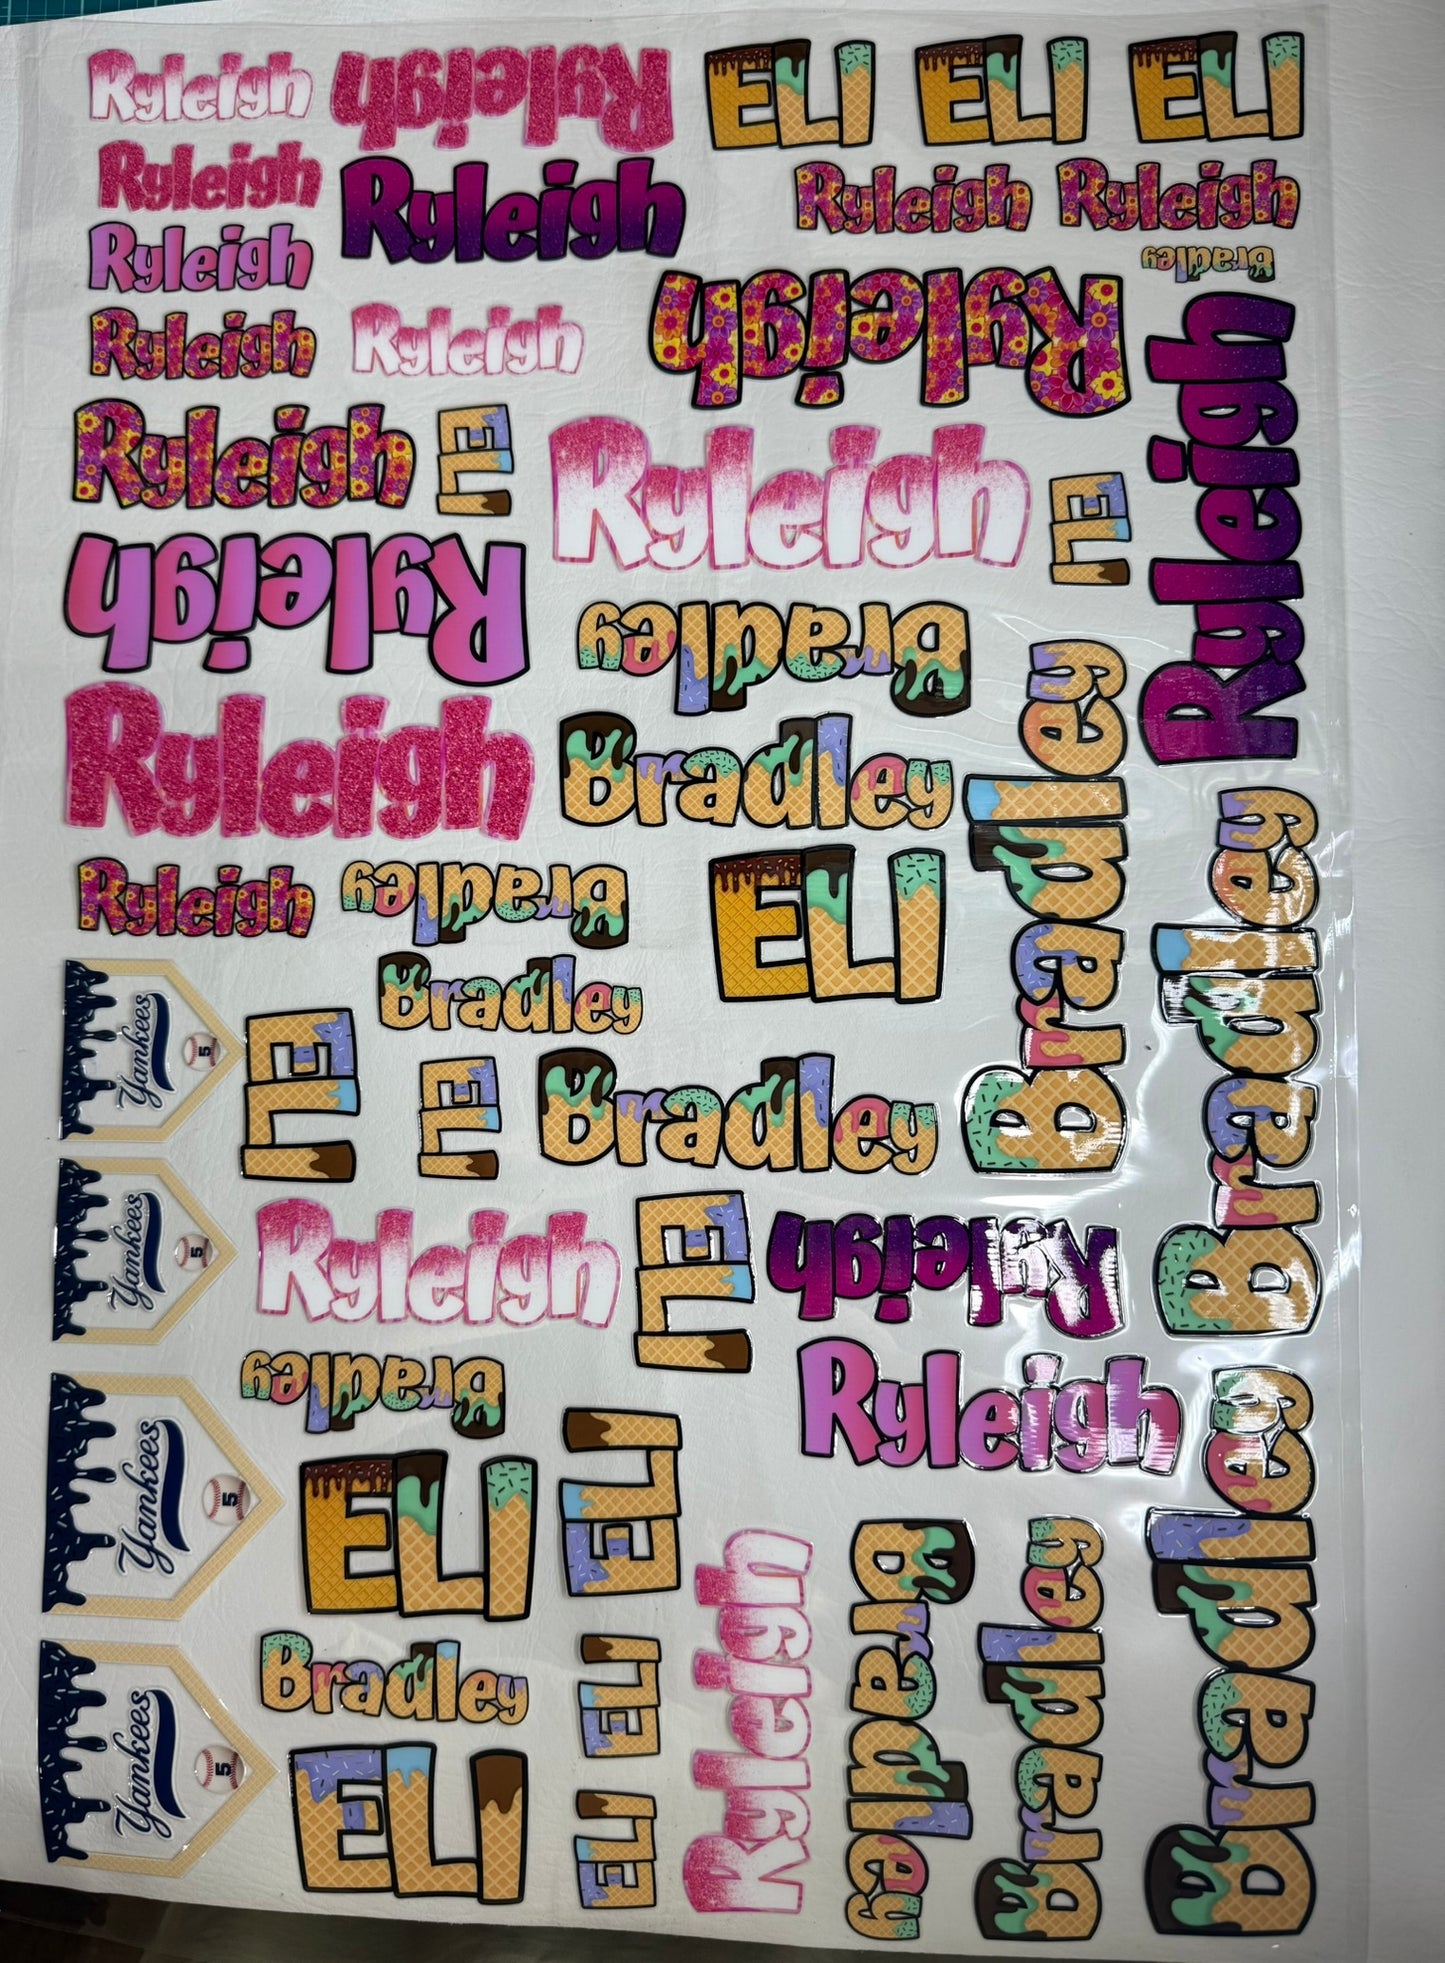 Ryleigh
Ryleigh
ELI
ELI
ELI
Ryleigh
Ryleigh
Ryleigh
Ryleigh
Ryleigh
Bradley
Ryleigh
Ryleigh
Ryleigh
Ryleigh
Ryleigh
Ryleigh
ELI
Ryleigh
ELI
Ryleigh
Bradley
Bradley
Ryleigh
Bradley
Bradley
ELI
Ryleigh
Bradley
Bradley
Yankees
5
ELI
ELI
Bradley
Yankees
5
Ryleigh
ELI
Ryleigh
Bradley
Ryleigh
Yankees
5
ELI
ELI
Bradley
Ryleigh
Bradley
Bradley
Yankees
5
Bradley
ELI
ELI
ELI